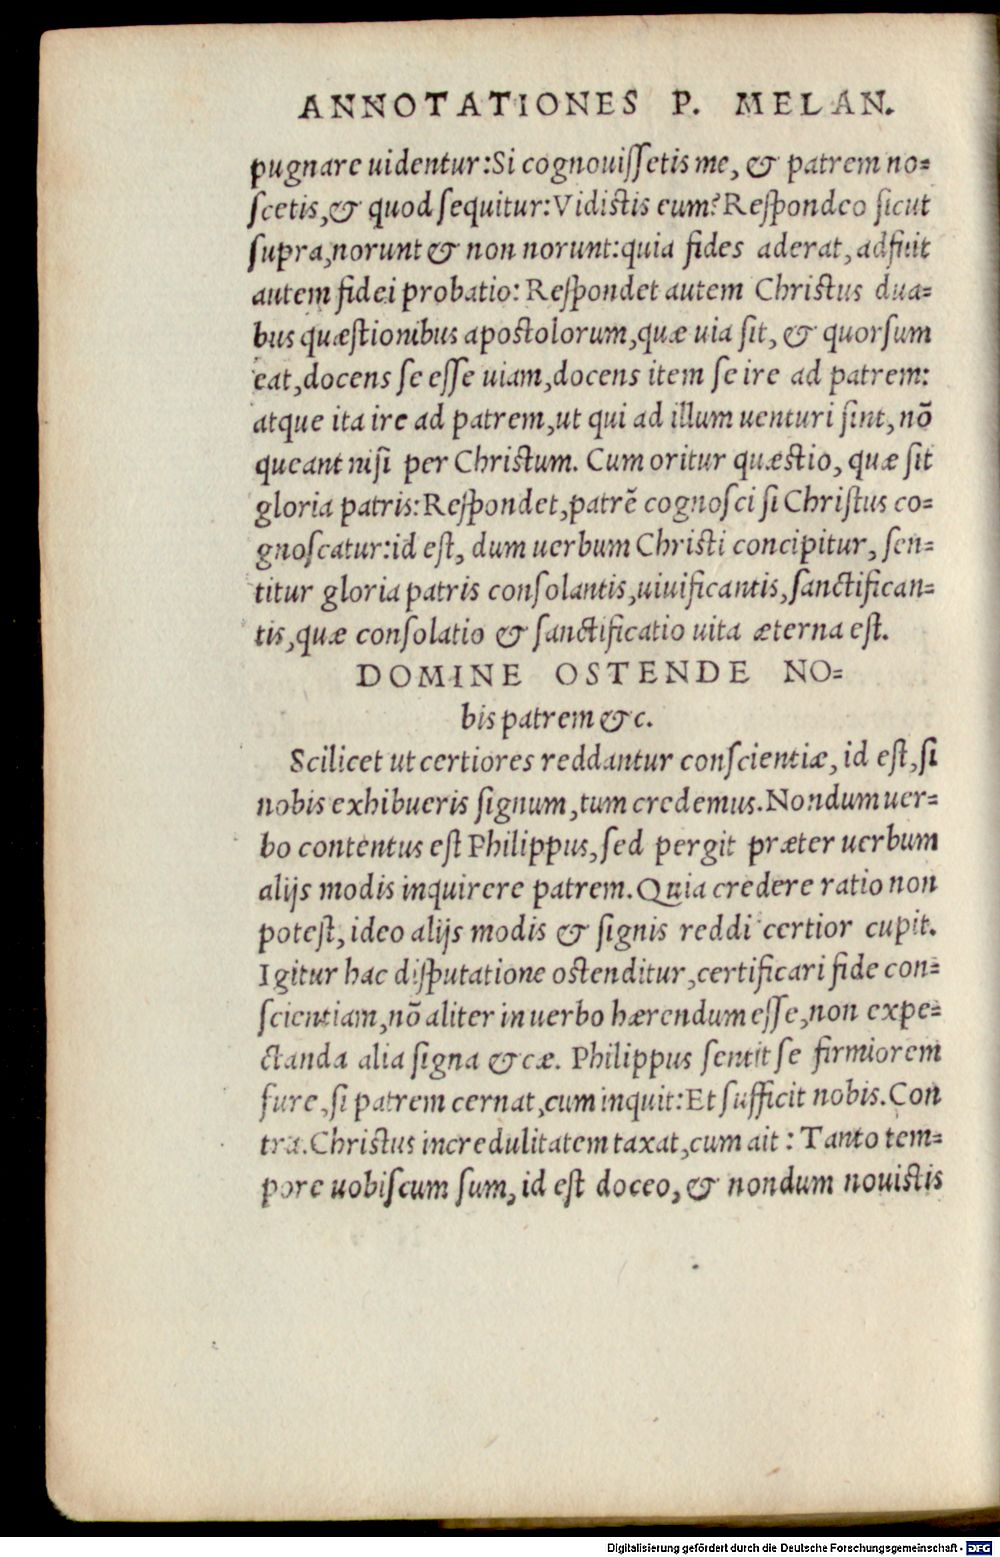 ANNOTATIONES P. MELAN.
pugnare uidentur:Si cognouiſſetis me, & patrem no=
ſcetis,& quod ſequitur:Vidiſtis eum? Reſpondeo ſicut
ſupra,norunt & non norunt:quia fides aderat, adfuit
autem fidei probatio: Reſpondet autem Chriſtus dua=
bus quæſtionibus apoſtolorum,quæ uia ſit, & quorſum
eat,docens ſe eſſe uiam,docens item ſe ire ad patrem:
atque ita ire ad patrem,ut qui ad illum uenturi ſint, nõ
queant niſi per Chriſtum. Cum oritur quæſtio, quæ ſit
gloria patris:Reſpondet,patrẽ cognoſci ſi Chriſtus co=
gnoſcatur:id eſt, dum uerbum Chriſti concipitur, ſen=
titur gloria patris conſolantis,uiuificantis,ſanctifican=
tis,quæ conſolatio & ſanctificatio uita æterna eſt.
DOMINE OSTENDE NO=
bis patrem &c.
Scilicet ut certiores reddantur conſcientiæ, id eſt,ſi
nobis exhibueris ſignum,tum credemus. Nondum uer=
bo contentus eſt Philippus, ſed pergit præter uerbum
alijs modis inquirere patrem. Quia credere ratio non
poteſt, ideo alijs modis & ſignis reddi certior cupit.
Igitur hac diſputatione oſtenditur,certificari fide con=
ſcientiam,nõ aliter in uerbo hærendum eſſe,non expe=
ctanda alia ſigna &cæ. Philippus ſentit ſe firmiorem
fure,ſi patrem cernat,cum inquit:Et ſufficit nobis. Con
tra. Chriſtus incredulitatem taxat,cum ait : Tanto tem=
pore uobiſcum ſum, id eſt doceo, & nondum nouiſtis
Digitalisierung gefördert durch die Deutsche Forschungsgemeinschaft - DFG